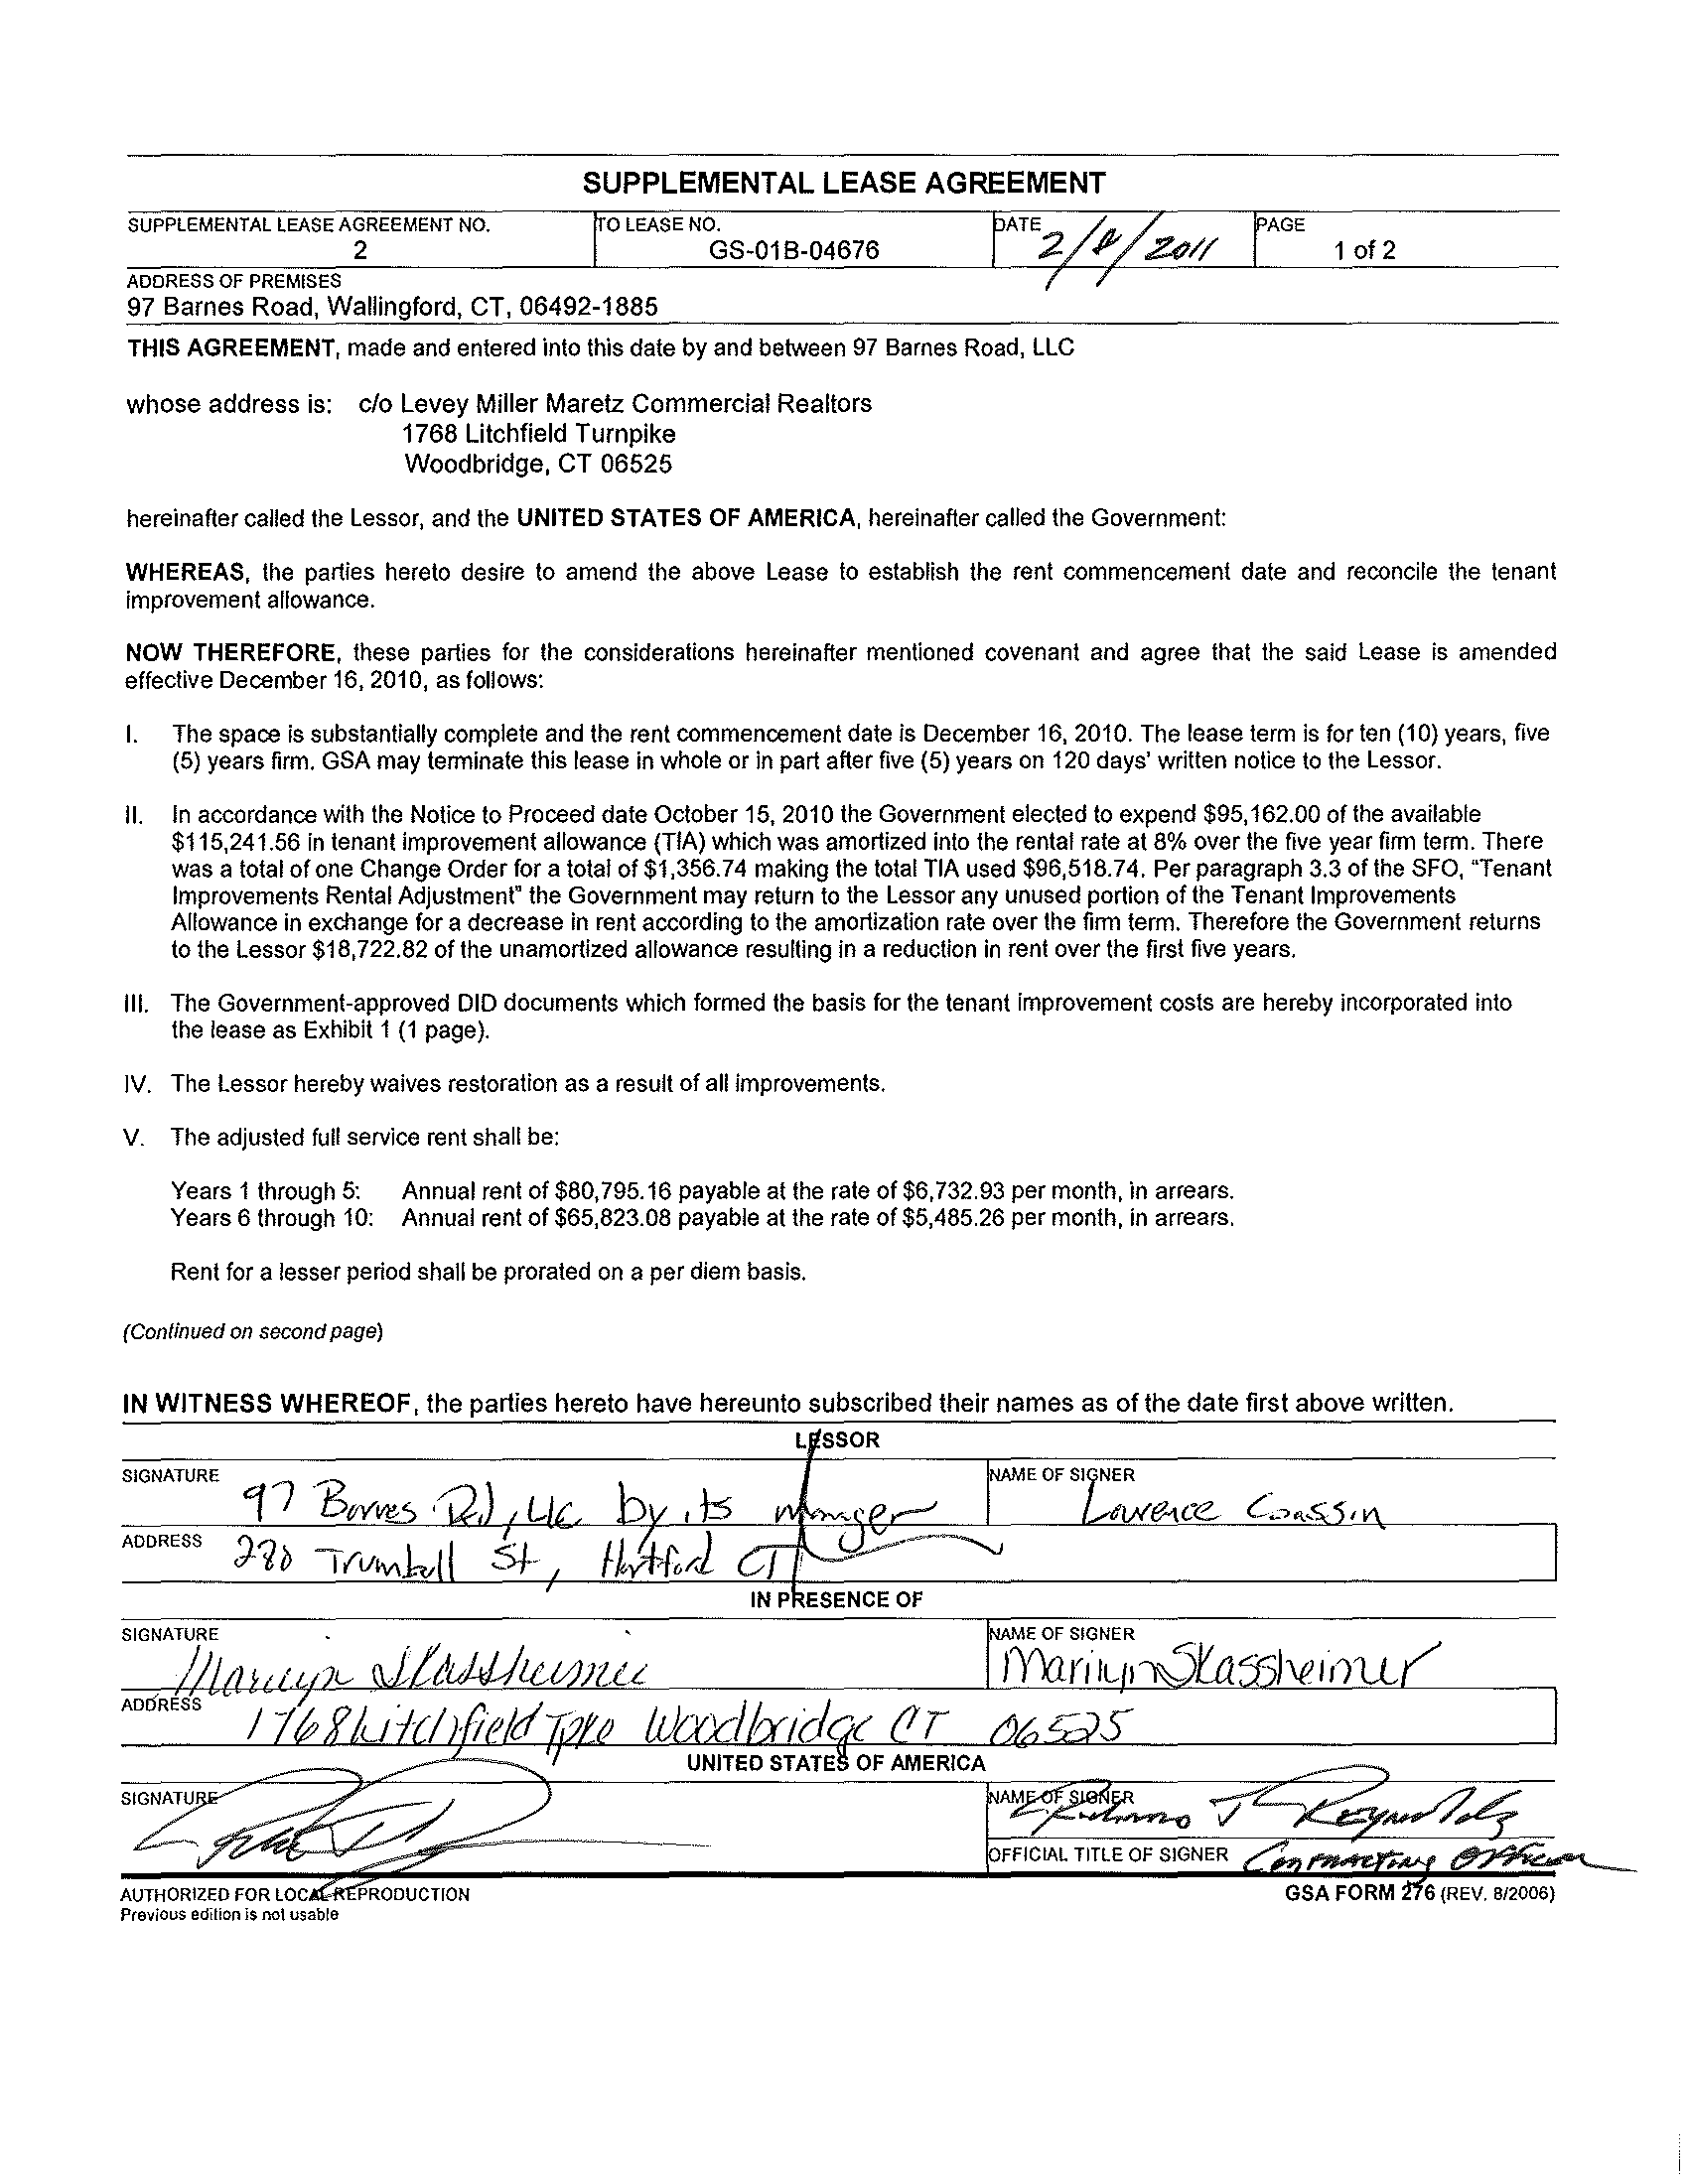 SUPPLEMENTAL LEASE AGREEMENT
SUPPLEMENTAL LEASE AGREEMENT NO.
2
TO LEASE NO.
GS-01B-04676
DATE
2/ /2011
PAGE
1 of 2
ADDRESS OF PREMISES
97 Barnes Road, Wallingford, CT, 06492-1885
THIS AGREEMENT, made and entered into this date by and between 97 Barnes Road, LLC
whose address is: c/o Levey Miller Maretz Commercial Realtors
1768 Litchfield Turnpike
Woodbridge, CT 06525
hereinafter called the Lessor, and the UNITED STATES OF AMERICA, hereinafter called the Government:
WHEREAS, the parties hereto desire to amend the above Lease to establish the rent commencement date and reconcile the tenant
improvement allowance.
NOW THEREFORE, these parties for the considerations hereinafter mentioned covenant and agree that the said Lease is amended
effective December 16, 2010, as follows:
I. The space is substantially complete and the rent commencement date is December 16, 2010. The lease term is for ten (10) years, five
(5) years firm. GSA may terminate this lease in whole or in part after five (5) years on 120 days' written notice to the Lessor.
II. In accordance with the Notice to Proceed date October 15, 2010 the Government elected to expend $95,162.00 of the available
$115,241.56 in tenant improvement allowance (TIA) which was amortized into the rental rate at 8% over the five year firm term. There
was a total of one Change Order for a total of $1,356.74 making the total TIA used $96,518.74. Per paragraph 3.3 of the SFO, "Tenant
Improvements Rental Adjustment" the Government may return to the Lessor any unused portion of the Tenant Improvements
Allowance in exchange for a decrease in rent according to the amortization rate over the firm term. Therefore the Government returns
to the Lessor $18,722.82 of the unamortized allowance resulting in a reduction in rent over the first five years.
III. The Government-approved DID documents which formed the basis for the tenant improvement costs are hereby incorporated into
the lease as Exhibit 1 (1 page).
IV. The Lessor hereby waives restoration as a result of all improvements.
V. The adjusted full service rent shall be:
Years 1 through 5: Annual rent of $80,795.16 payable at the rate of $6,732.93 per month, in arrears.
Years 6 through 10: Annual rent of $65,823.08 payable at the rate of $5,485.26 per month, in arrears.
Rent for a lesser period shall be prorated on a per diem basis.
(Continued on second page)
IN WITNESS WHEREOF, the parties hereto have hereunto subscribed their names as of the date first above written.
LESSOR
SIGNATURE
97 Barnes Rd, LLC by its manager
NAME OF SIGNER
Lawrence
ADDRESS
280 Trumbull St, Hartford CT
IN PRESENCE OF
SIGNATURE
Marilyn Slassheimer
NAME OF SIGNER
Marilyn Slassheimer
ADDRESS
1768 Litchfield Tpke Woodbridge CT 06525
UNITED STATES OF AMERICA
SIGNATURE
NAME OF SIGNER
J Reynolds
OFFICIAL TITLE OF SIGNER
Contracting Officer
AUTHORIZED FOR LOCAL REPRODUCTION
Previous edition is not usable
GSA FORM 276 (REV. 8/2006)